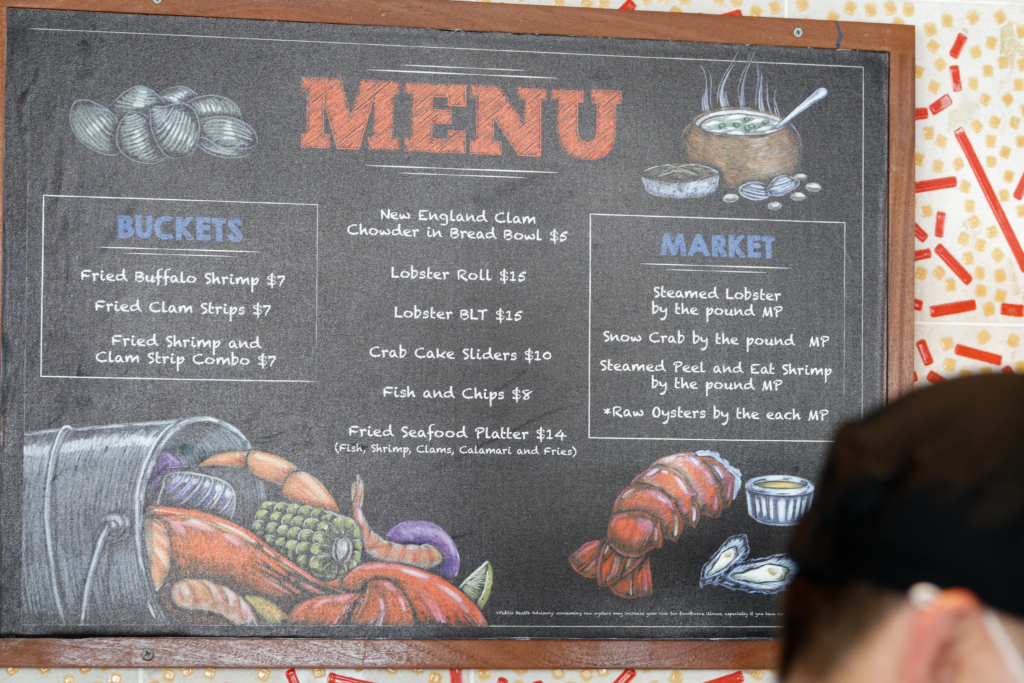 MENU
BUCKETS
Fried Buffalo Shrimp $7
Fried Clam Strips $7
Fried Shrimp and
Clam Strip Combo $7
New England Clam
Chowder in Bread Bowl $5
Lobster Roll $15
Lobster BLT $15
Crab Cake Sliders $10
Fish and Chips $8
Fried Seafood Platter $14
(Fish, Shrimp, Clams, Calamari and Fries)
MARKET
Steamed Lobster
by the pound MP
Snow Crab by the pound MP
Steamed Peel and Eat Shrimp
by the pound MP
*Raw Oysters by the each MP
*Public Health Advisory: consuming raw oysters may increase your risk for foodborne illness, especially if you have